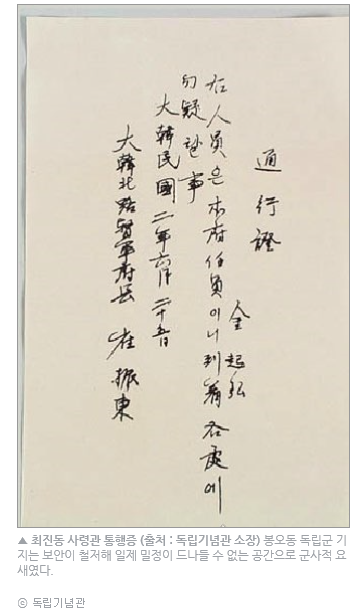 通行證
金起
右人員은 本府任員이니 到着 各處에
勿疑할 事
大韓民國 二年 六月 二十五日
大韓北路督軍府長 崔振東
▲ 최진동 사령관 통행증 (출처 : 독립기념관 소장) 봉오동 독립군 기
지는 보안이 철저해 일제 밀정이 드나들 수 없는 공간으로 군사적 요
새였다.
ⓒ 독립기념관